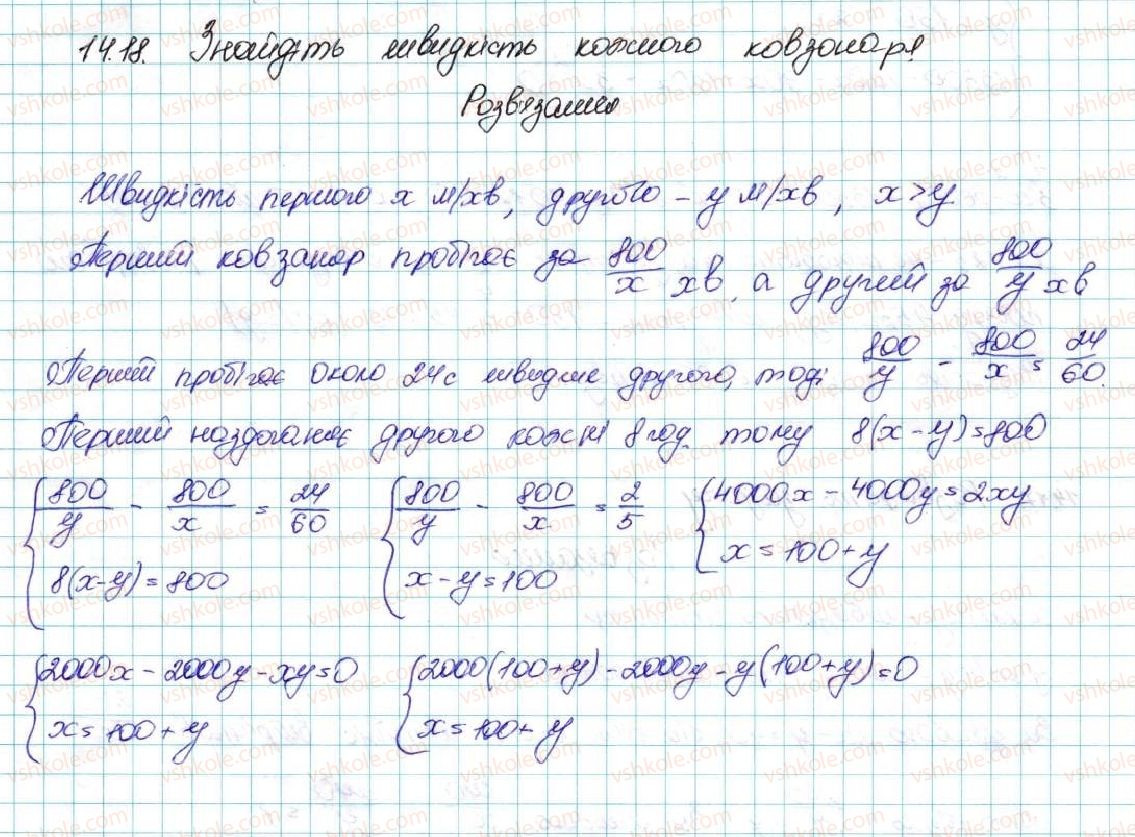 14.18. Знайдіть швидкість кожного ковзанаря
Розв'язання
Швидкість першого x м/хв, другого – y м/хв, x>y
Перший ковзанар пробігає за 800/x хв, а другий за 800/y хв
Перший пробігає около 24с швидше другого, тоді 800/y - 800/x = 24/60.
Перший наздоганяє другого кожні 8 год тому 8(x-y)=800
{800/y - 800/x = 24/60 {800/y - 800/x = 2/5 {4000x - 4000y = 2xy
8(x-y)=800 x-y=100 x=100+y
{2000x - 2000y - xy=0 {2000(100+y) - 2000y - y(100+y)=0
x=100+y x=100+y
vshkole.com